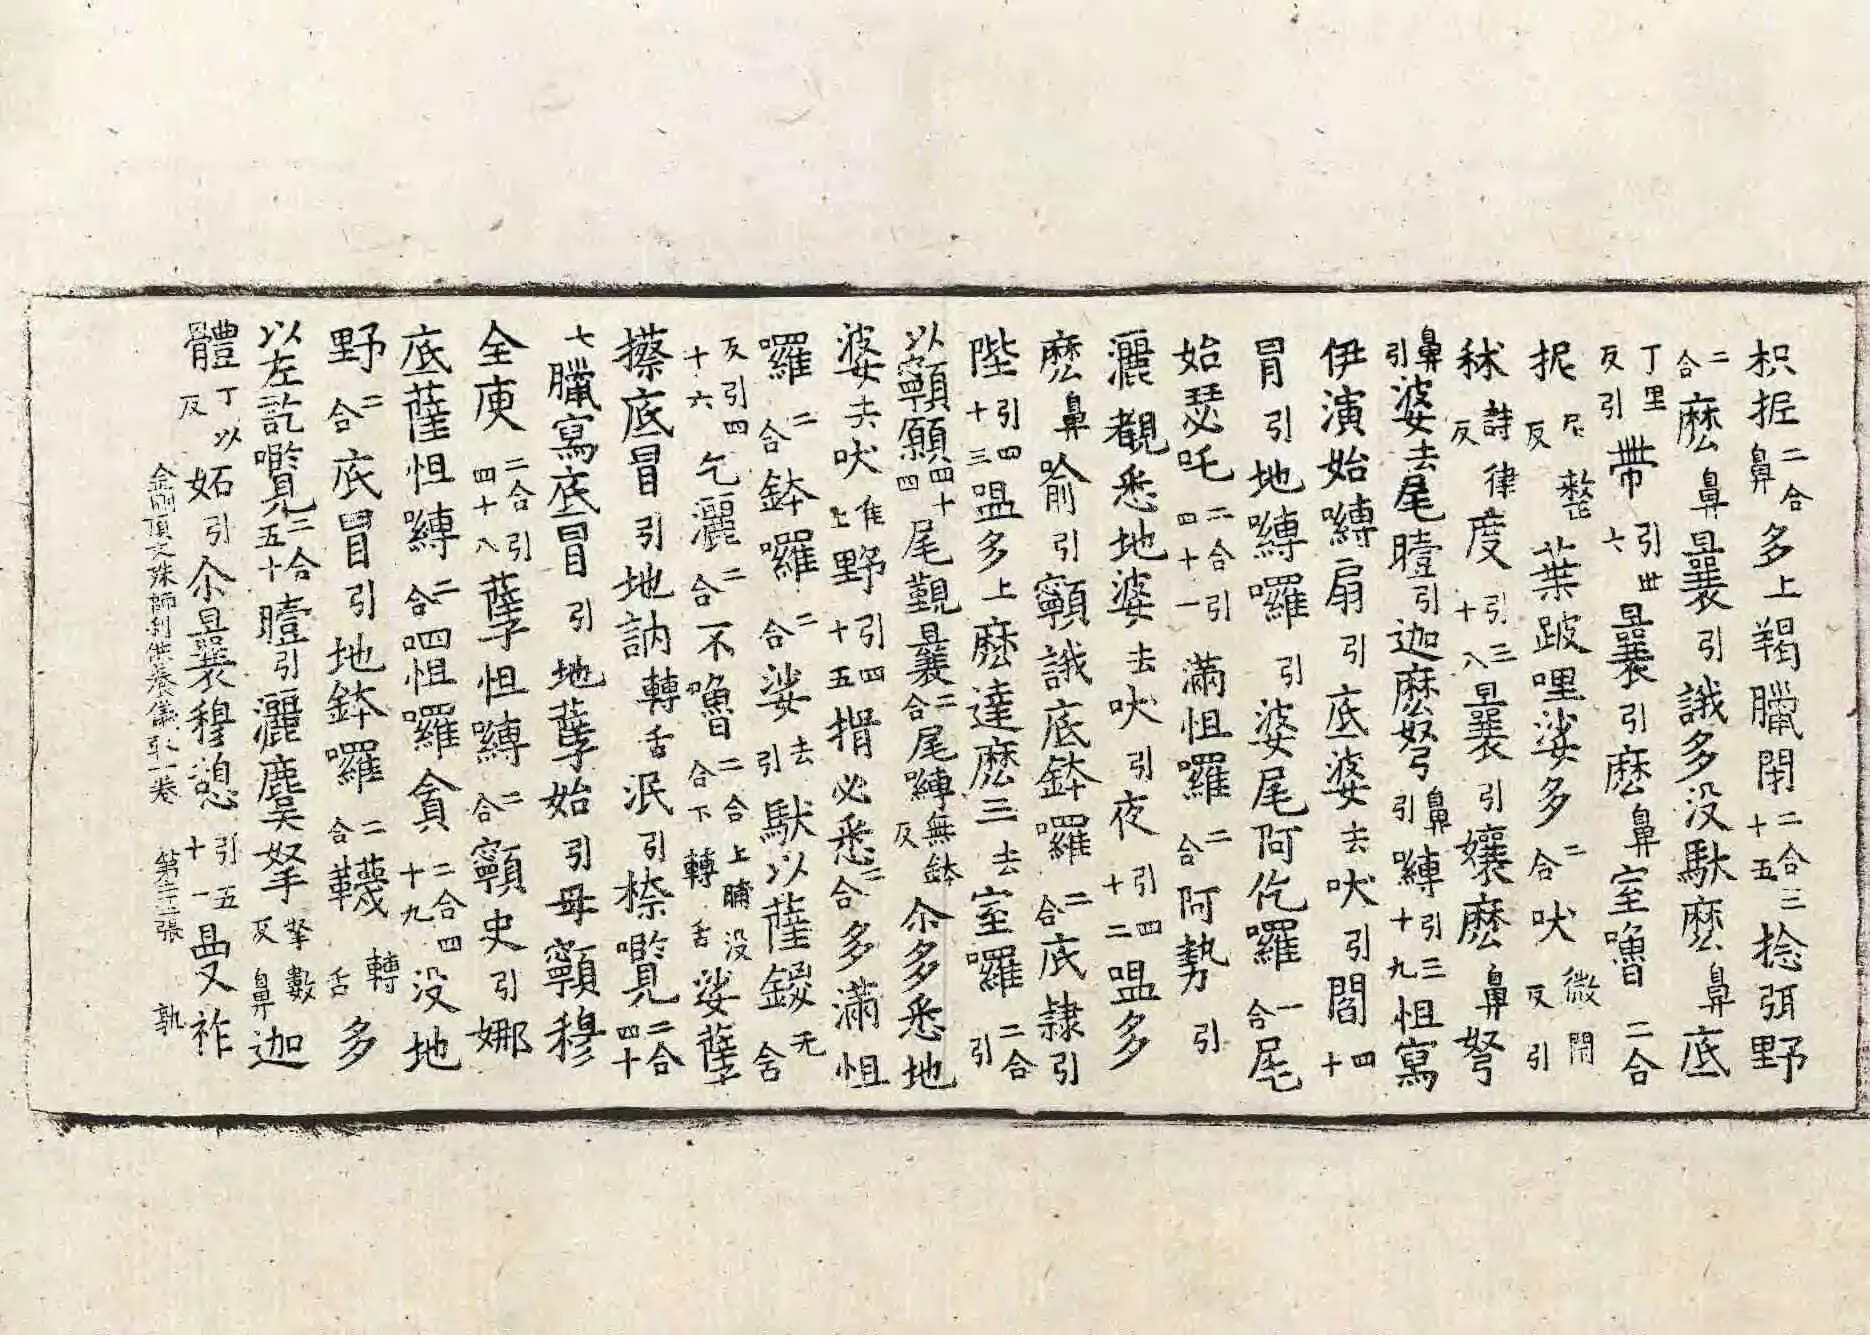 枳抳鼻二合多上羯臘閉二合三十五捻弭野
二合麽鼻曩引誐多没馱麽鼻底
丁里反引帶引卅六曩引麽鼻室嚕二合
抳尼整反葉跛哩娑多二合吠微閉反引
秫詩律反度引三十八曩引孃麽鼻弩
鼻引婆去尾曀引迦麽弩鼻引嚩引三十九怛寫
伊演始嚩扇引底婆去吠引閻四十
冒引地嚩囉引婆尾阿仡囉二合尾
始瑟吒二合引四十一滿怛囉二合阿勢引
灑覩悉地婆去吠引夜引四十二嗢多
麽鼻喻引顐誐底鉢囉二合底隷引
陛引四十三嗢多上麽達麽三去室囉二合引
以顐願四十四尾覲曩二合尾嚩無鉢反尒多悉地
婆去吠隹上野引四十五揟必悉二合多滿怛
囉二合鉢囉二合娑去引馱以薩錽无含
反引四十六乞灑二合不嚕二合上脯没合下轉舌娑孽
攃底冒引地訥轉舌泯引㮈囕二合四十
七臘寫底冒引地孽始引母顐穆
全庾二合引四十八孽怛嚩二合顐史引娜
底薩怛嚩二合四怛囉貪二合四十九没地
野二合底冒引地鉢囉二合韈轉舌多
以左訖囕二合五十曀引灑麌拏拏數反鼻迦
體丁以反妬引尒曩穆憩引五十一曼祚
金剛頂文殊師利供養儀軌一卷 第十三張 孰